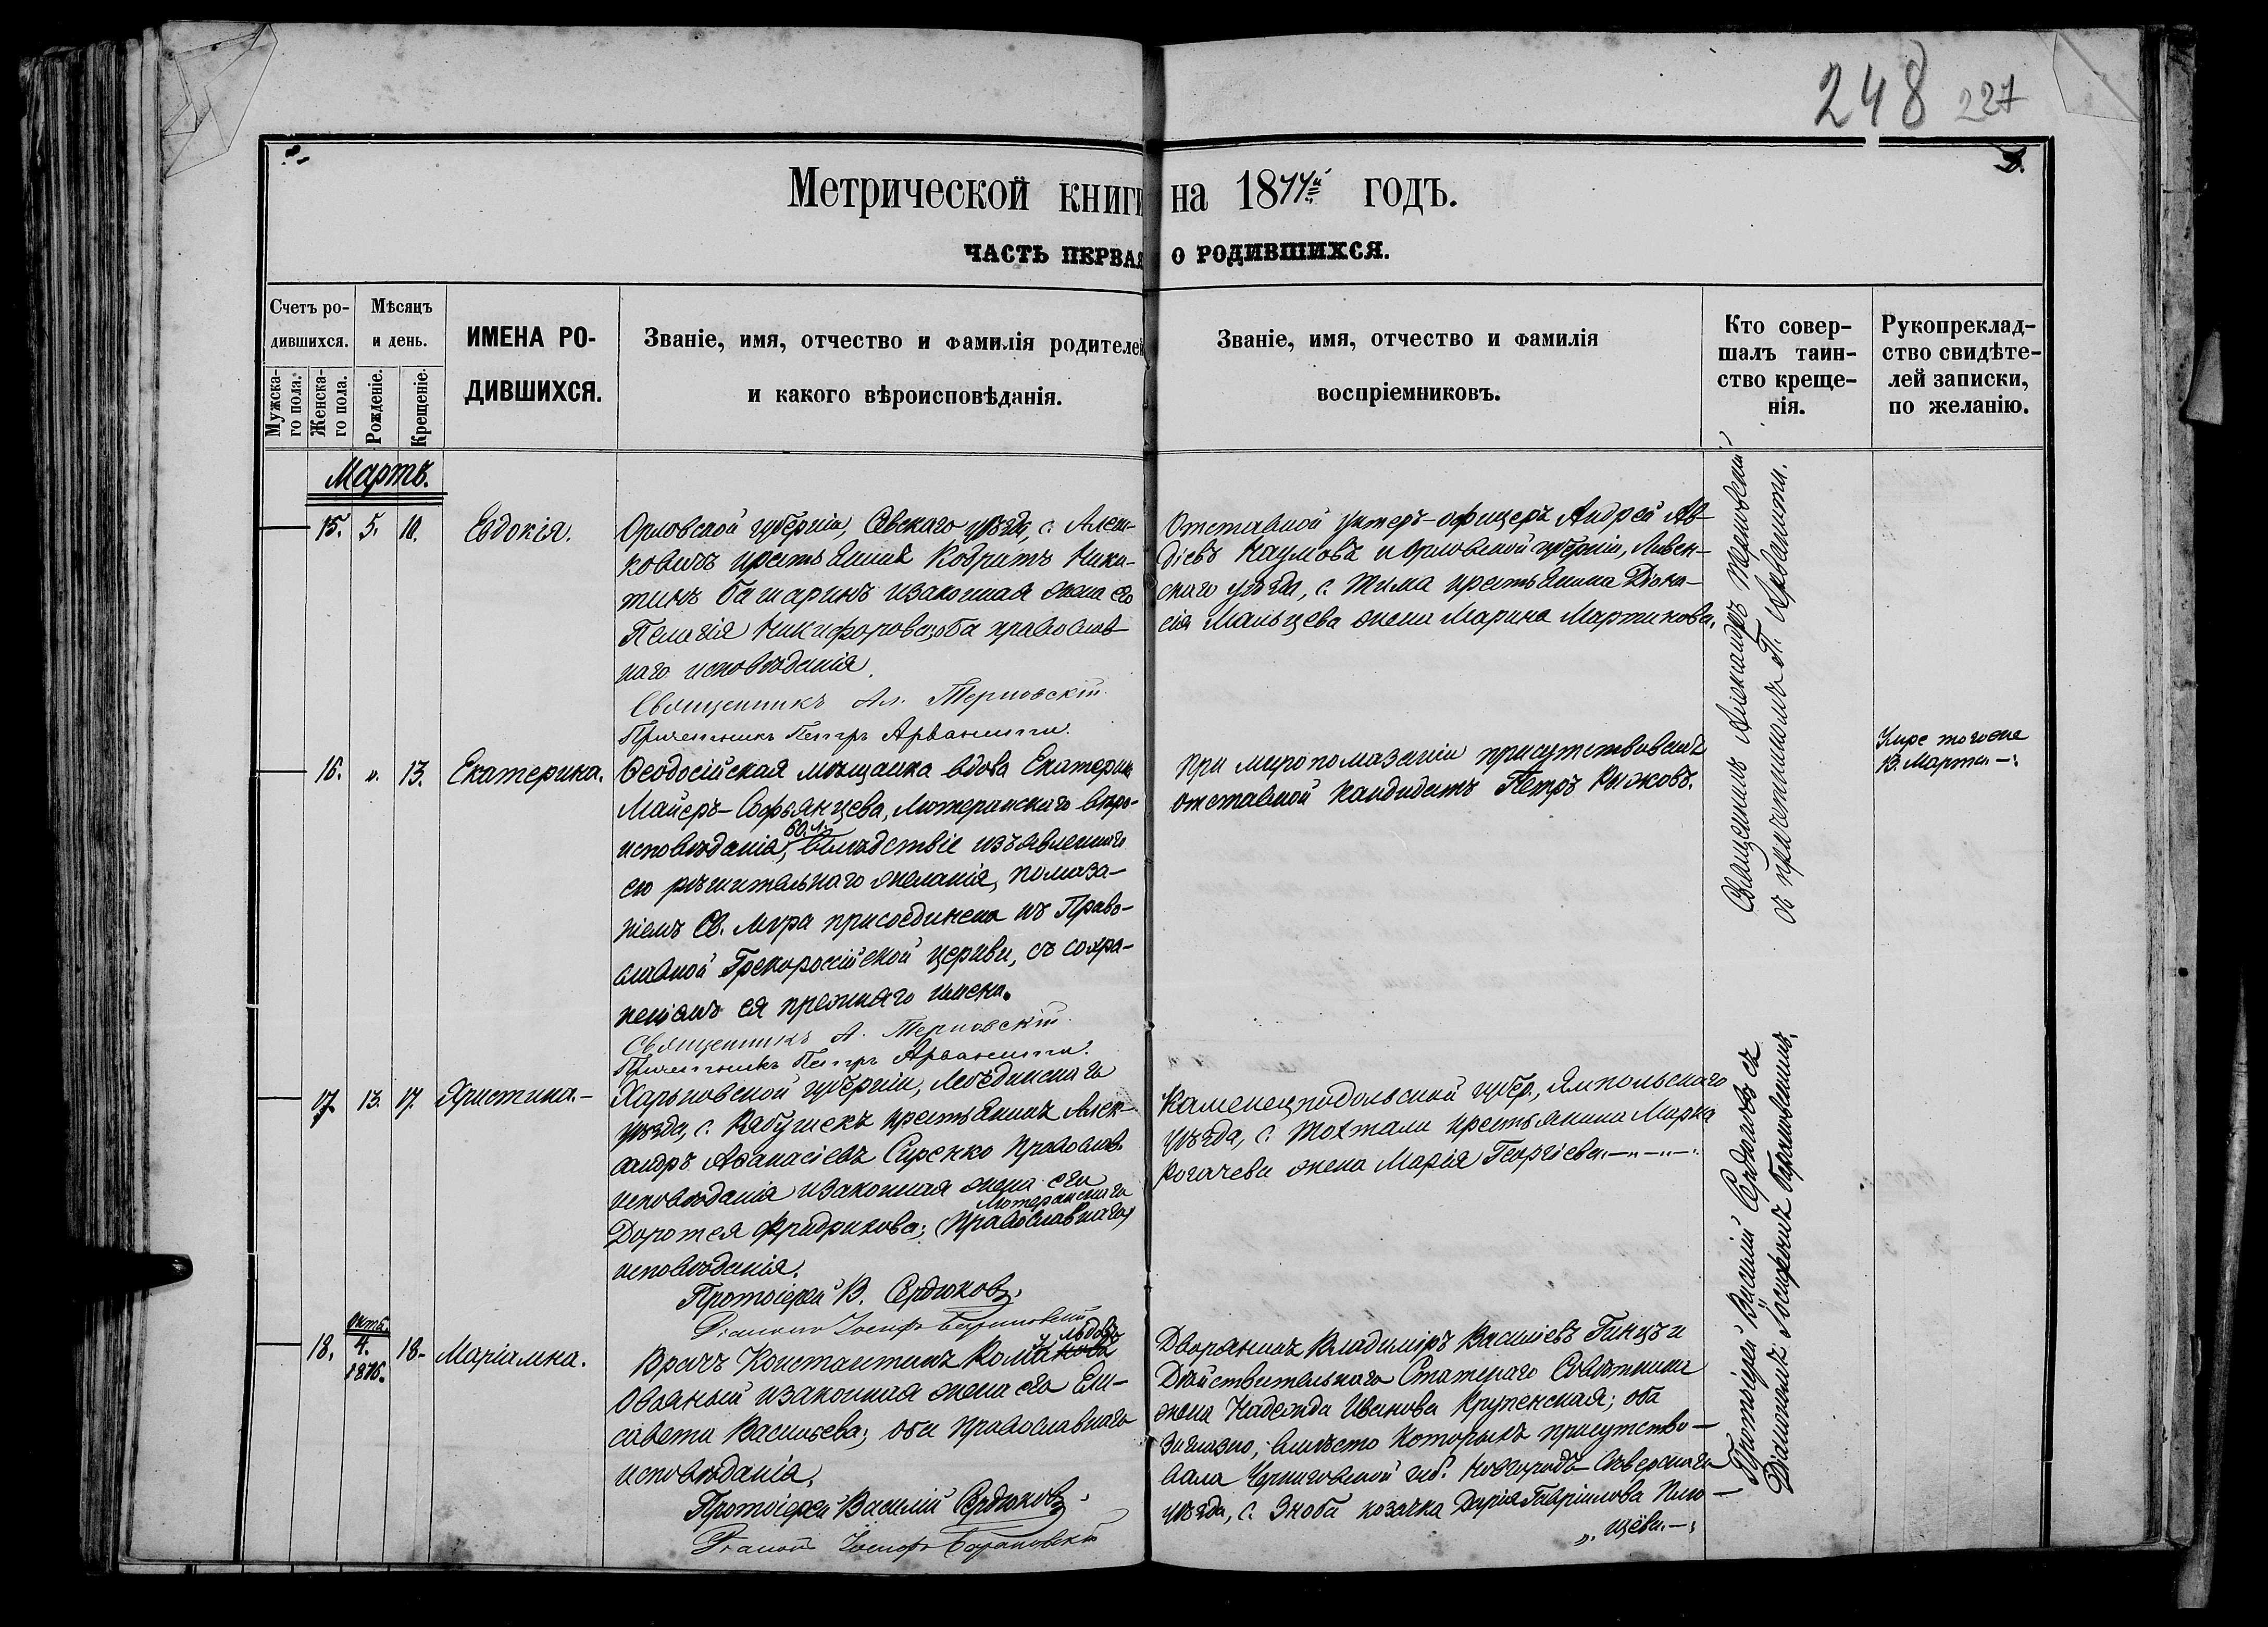 248 227
Метрической книги на 1877й годъ.
ЧАСТЬ ПЕРВАЯ О РОДИВШИХСЯ.
Счетъ ро-
дившихся.
Мужска-
го пола.
Женска-
го пола.
Мѣсяцъ
и день.
Рожденіе.
Крещеніе.
ИМЕНА РО-
ДИВШИХСЯ.
Званіе, имя, отчество и фамилія родителей
и какого вѣроисповѣданія.
Званіе, имя, отчество и фамилія
воспріемниковъ.
Кто совер-
шалъ таин-
ство креще-
нія.
Рукопреклад-
ство свидѣте-
лей записки,
по желанію.
Мартъ.
15. 5. 10. Евдокія.
Орловской губерніи, Севскаго уѣзда, с.
крестьянинъ Ники-
тинъ и законная жена его
Пелагія Никифорова, оба православ-
наго исповѣданія.
Священникъ Ал. Терновскій
Причетникъ Петръ Арванити.
Отставной унтеръ-офицеръ Андрей Ав-
діевъ Наумовъ и Орловской губерніи, Ливен-
скаго уѣзда, с. Тима крестьянина Діони-
сія Мальцева жена Марина Мартинова.
Священникъ Александръ Терновскій
съ причетникомъ П. Арванити.
16. „ 13. Екатерина.
Ѳеодосійская мѣщанка вдова Екатерина
Майеръ-Софьянцева, Лютеранскаго вѣро-
исповѣданія, 60 л. вслѣдствіе изъявленнаго
ею рѣшительнаго желанія, помаза-
ніемъ Св. Мура присоединена къ Право-
славной Грекороссійской церкви, съ сохра-
неніемъ ея прежняго имени.
Священникъ А. Терновскій
Причетникъ Петръ Арванити.
При муропомазаніи присутствовалъ
отставной кандидатъ Петръ Рыжовъ.
тогоже
13 Марта
17. 13. 17. Христина.
Харьковской губерніи, Лебединскаго
уѣзда, с. Рябушекъ крестьянинъ Алек-
сандръ Аѳанасіевъ Сиренко православ.
исповѣданія и законная жена его
Лютеранскаго
Доротея Фридрихова; (православнаго)
исповѣданія.
Протоіерей В. Сердюковъ.
Діаконъ Іосифъ Барановскій
Каменецподольской губер., Ямпольскаго
уѣзда, с. крестьянина Марка
Рогачева жена Марія Георгіева.
Протоіерей Василій Сердюковъ съ
Діакономъ Іосифомъ Барановскимъ.
18. Октб. 4. 1876. 18. Маріамна.
Врачъ Константинъ
и законная жена его Ели-
савета Васильева; оба православнаго
исповѣданія.
Протоіерей Василій Сердюковъ.
Діаконъ Іосифъ Барановскій
Дворянинъ Владиміръ Васильевъ Гинцъ и
Дѣйствительнаго Статскаго Совѣтника
жена Надежда Иванова Крупенская; оба
заглазно; вмѣсто которыхъ присутство-
вала Черниговской губ. Новгородъ-Сѣверскаго
уѣзда, с. Зноба козачка Дарія Гавріилова